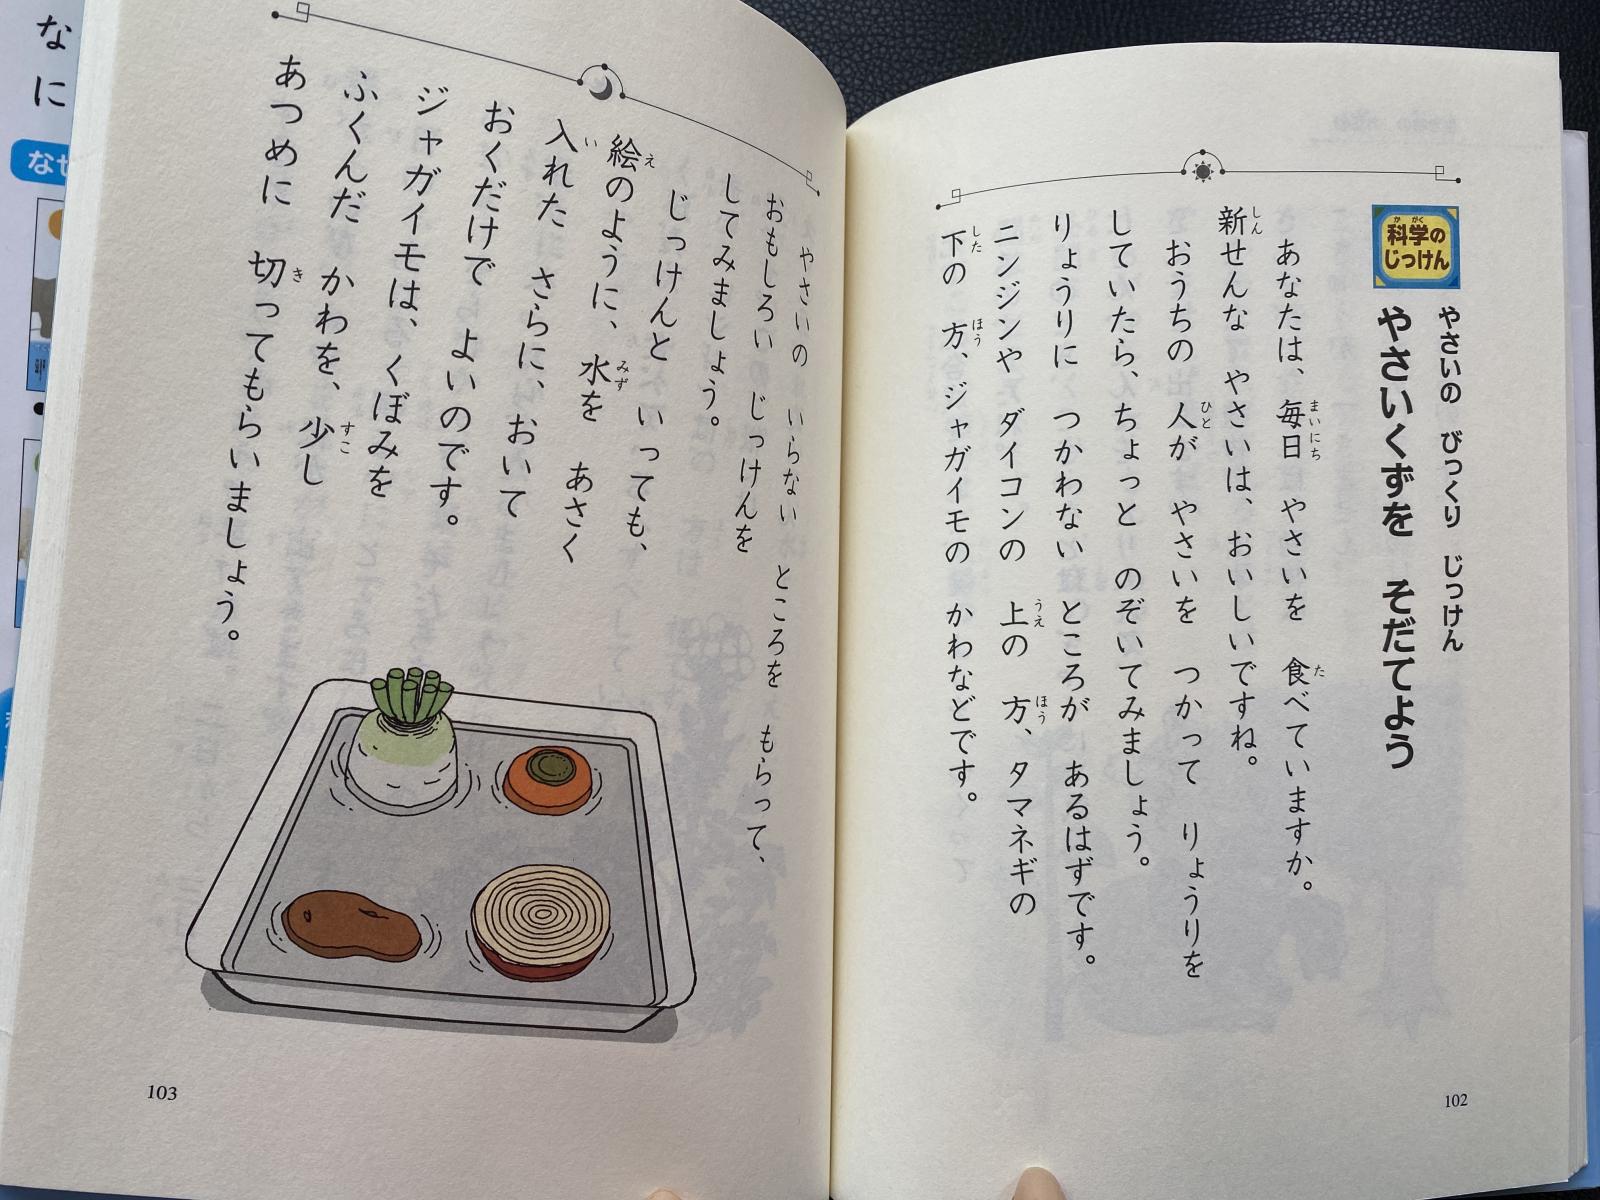 科学の
じっけん
やさいの　びっくり　じっけん
やさいくずを　そだてよう
あなたは、毎日　やさいを　食べていますか。
新せんな　やさいは、おいしいですね。
おうちの　人が　やさいを　つかって　りょうりを
していたら、ちょっと　のぞいてみましょう。
りょうりに　つかわない　ところが　あるはずです。
ニンジンや　ダイコンの　上の　方、タマネギの
下の　方、ジャガイモの　かわなどです。
102
やさいの　いらない　ところを　もらって、
おもしろい　じっけんを
してみましょう。
じっけんと　いっても、
絵のように、水を　あさく
入れた　さらに、おいて
おくだけで　よいのです。
ジャガイモは、くぼみを
ふくんだ　かわを、少し
あつめに　切ってもらいましょう。
103
な
に
なぜ